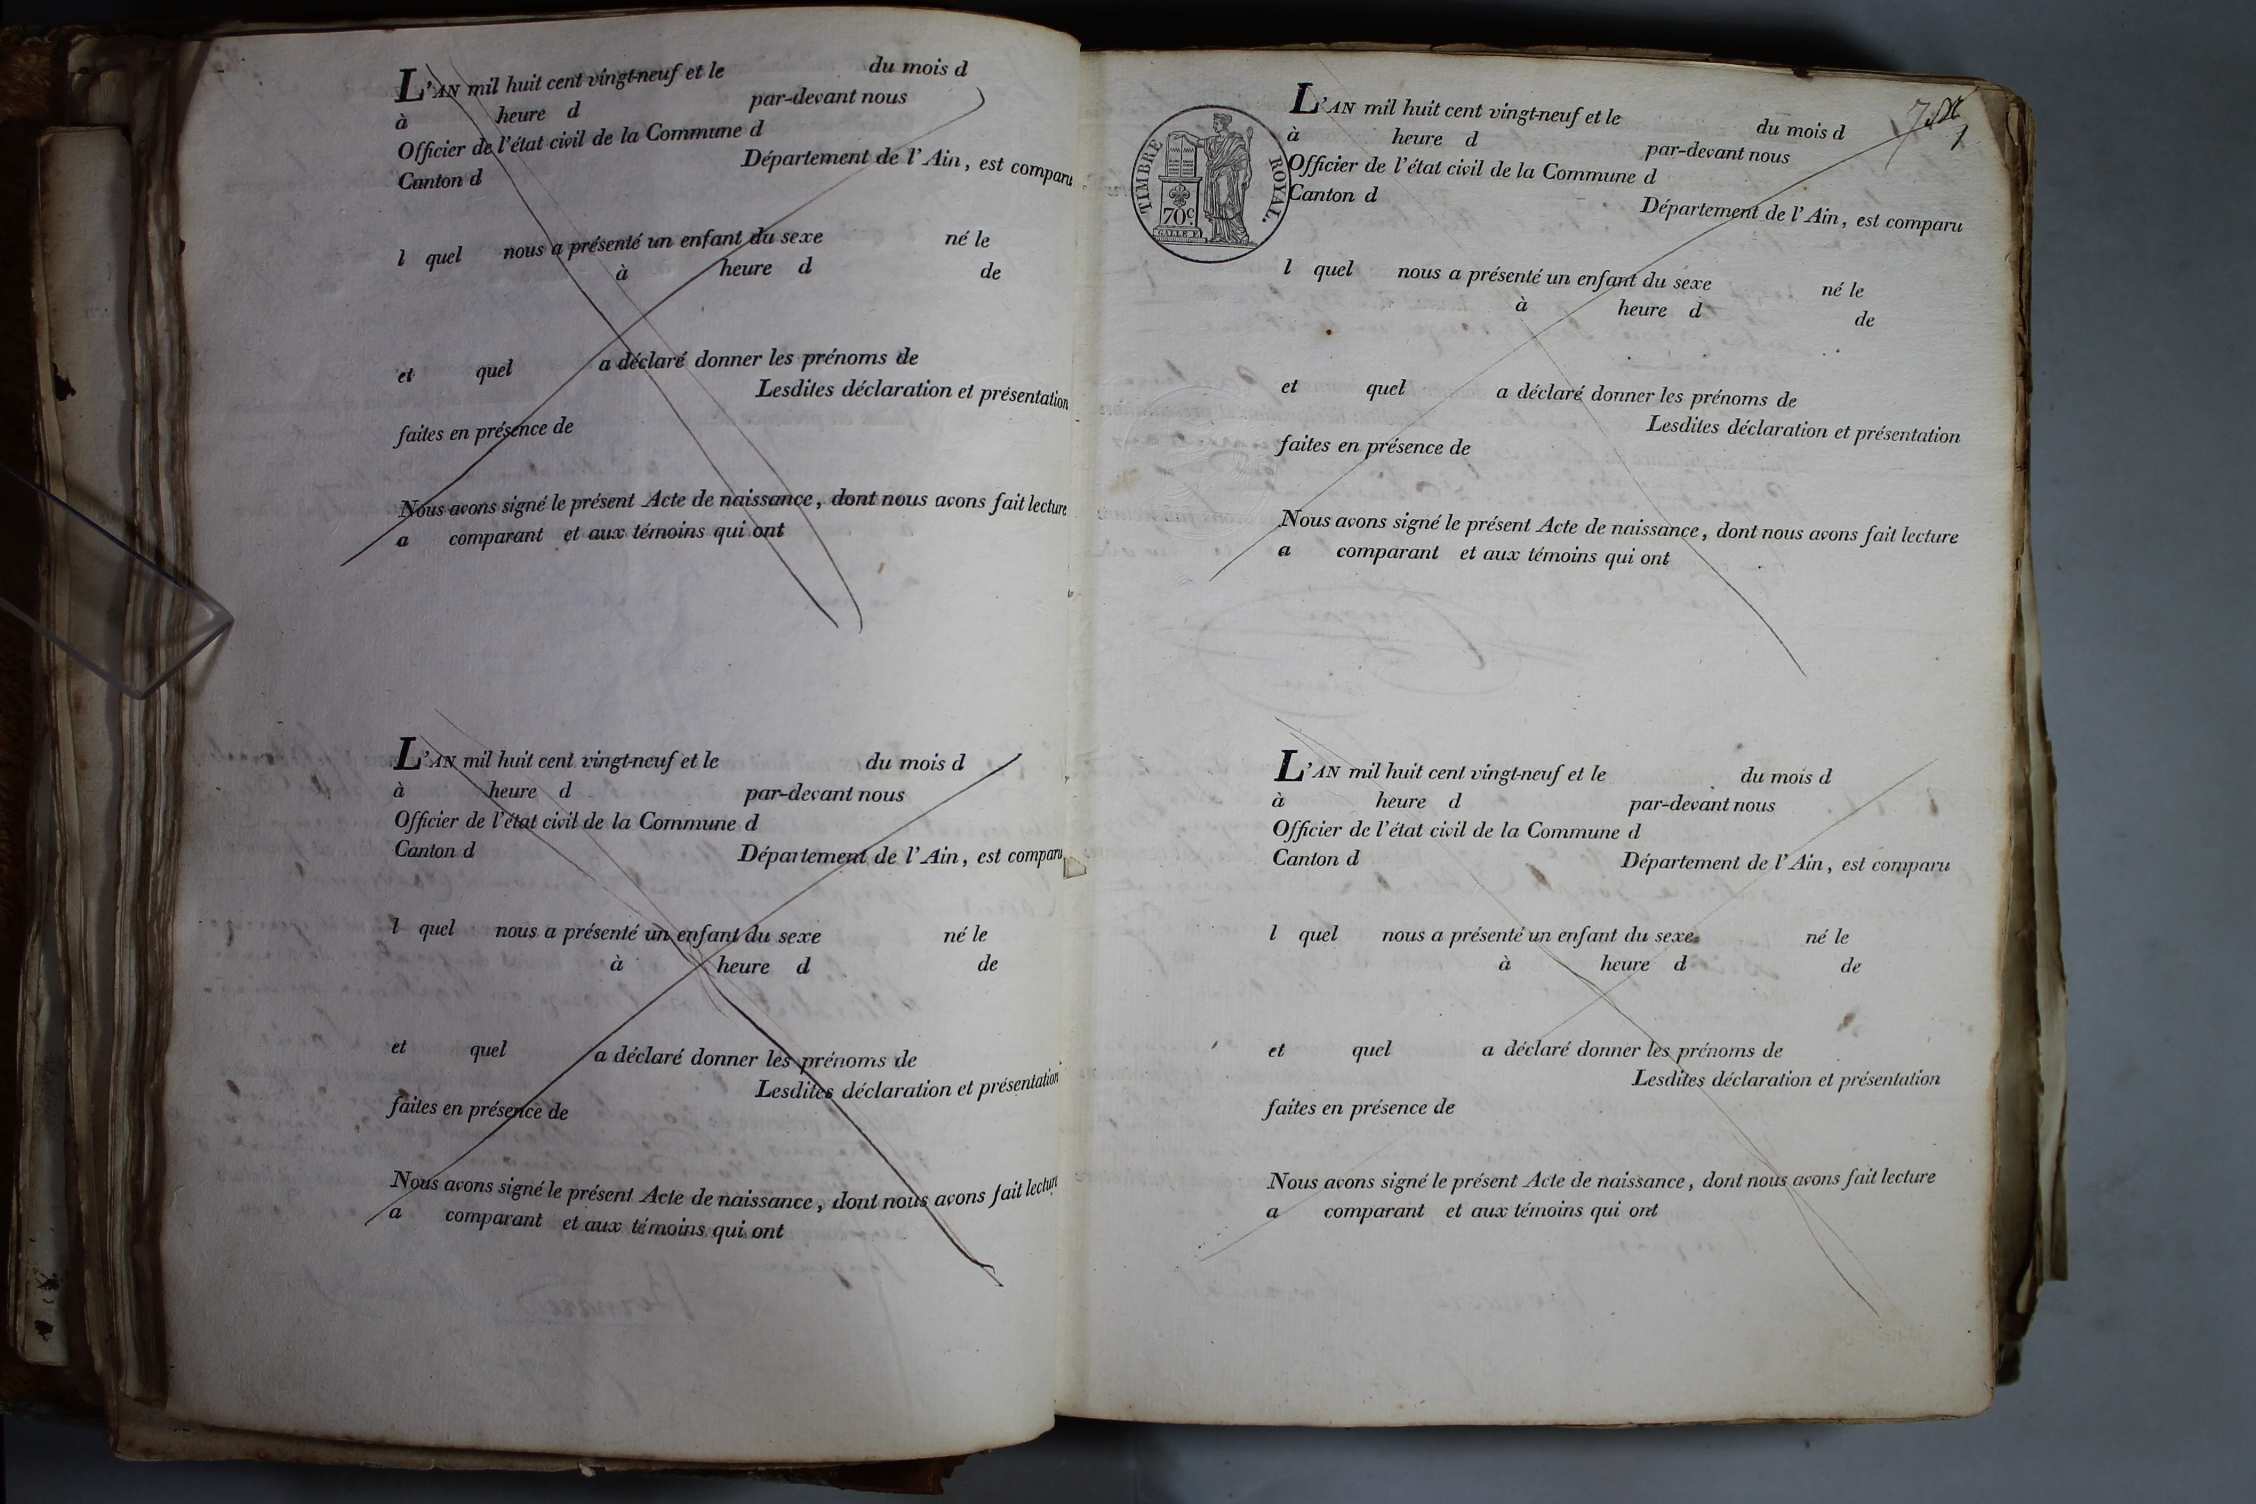 L'AN mil huit cent vingt-neuf et le du mois d
à heure d par-devant nous
Officier de l'état civil de la Commune d
Canton d Département de l'Ain, est comparu
l quel nous a présenté un enfant du sexe né le
à heure d de
et quel a déclaré donner les prénoms de
Lesdites déclaration et présentation
faites en présence de
Nous avons signé le présent Acte de naissance, dont nous avons fait lecture
a comparant et aux témoins qui ont
L'AN mil huit cent vingt-neuf et le du mois d
à heure d par-devant nous
Officier de l'état civil de la Commune d
Canton d Département de l'Ain, est comparu
l quel nous a présenté un enfant du sexe né le
à heure d de
et quel a déclaré donner les prénoms de
Lesdites déclaration et présentation
faites en présence de
Nous avons signé le présent Acte de naissance, dont nous avons fait lecture
a comparant et aux témoins qui ont
TIMBRE ROYAL.
70c.
GALLE F.
L'AN mil huit cent vingt-neuf et le du mois d
à heure d par-devant nous
Officier de l'état civil de la Commune d
Canton d Département de l'Ain, est comparu
l quel nous a présenté un enfant du sexe né le
à heure d de
et quel a déclaré donner les prénoms de
Lesdites déclaration et présentation
faites en présence de
Nous avons signé le présent Acte de naissance, dont nous avons fait lecture
a comparant et aux témoins qui ont
L'AN mil huit cent vingt-neuf et le du mois d
à heure d par-devant nous
Officier de l'état civil de la Commune d
Canton d Département de l'Ain, est comparu
l quel nous a présenté un enfant du sexe né le
à heure d de
et quel a déclaré donner les prénoms de
Lesdites déclaration et présentation
faites en présence de
Nous avons signé le présent Acte de naissance, dont nous avons fait lecture
a comparant et aux témoins qui ont